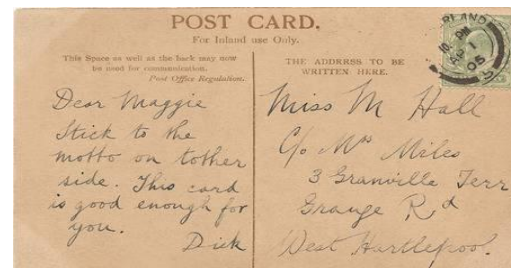 POST CARD.
For Inland use Only.
This Space as well as the back may now
be used for communication.
Post Office Regulation.
THE ADDRESS TO BE
WRITTEN HERE.
RLAND
10. PM
1
05
Dear Maggie
Stick to the
motto on tother
side. This card
is good enough for
you.
Dick
Miss M Hall
C/o Mrs Miles
3 Granville Terr
Grange Rd
West Hartlepool.